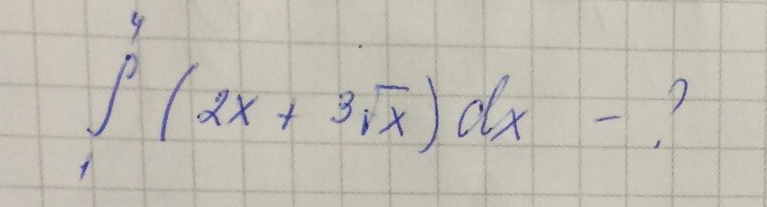 ∫₁⁴ (2x + 3√x) dx - ?